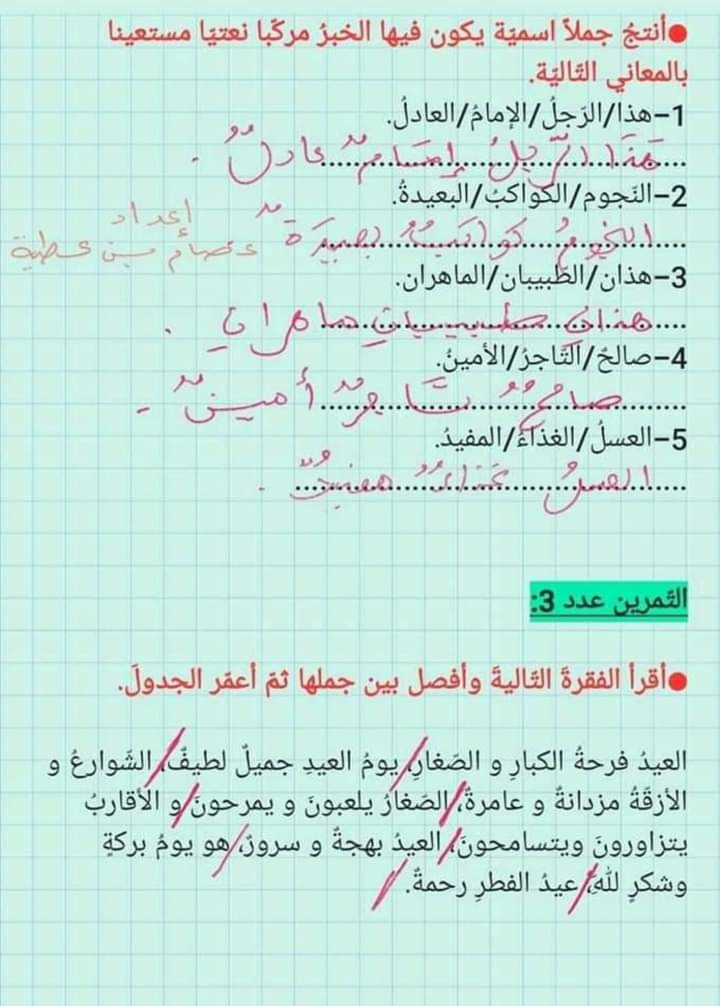 ●أنتجُ جملاً اسميّة يكون فيها الخبرُ مركّبا نعتيّا مستعينا
بالمعاني التّاليّة.
1–هذا/الرّجلُ/الإمامُ/العادلُ.
هَذَا الرَّجُلُ إِمَامٌ عادلٌ .
2–النّجوم/الكواكبُ/البعيدةُ.
النّجومُ كواكبٌ بعيدَةٌ
إعداد
عصام بن عطية
3–هذان/الطّبيبان/الماهران.
هذانِ طبيبانِ ماهرانِ .
4–صالحٌ/التّاجرُ/الأمينُ.
صالحٌ تَاجرٌ أمينٌ .
5–العسلُ/الغذاءُ/المفيدُ.
العسلُ غذاءٌ مفيدٌ .
التّمرين عدد 3:
●أقرأ الفقرةَ التّاليةَ وأفصل بين جملها ثمّ أعمّر الجدولَ.
العيدُ فرحةُ الكبارِ و الصّغارِ، يومُ العيدِ جميلٌ لطيفٌ، الشّوارعُ و
الأزقّةُ مزدانةٌ و عامرةٌ، الصّغارُ يلعبونَ و يمرحونَ و الأقاربُ
يتزاورونَ ويتسامحونَ، العيدُ بهجةٌ و سرورٌ، هو يومُ بركةٍ
وشكرٍ للّهِ، عيدُ الفطرِ رحمةٌ.